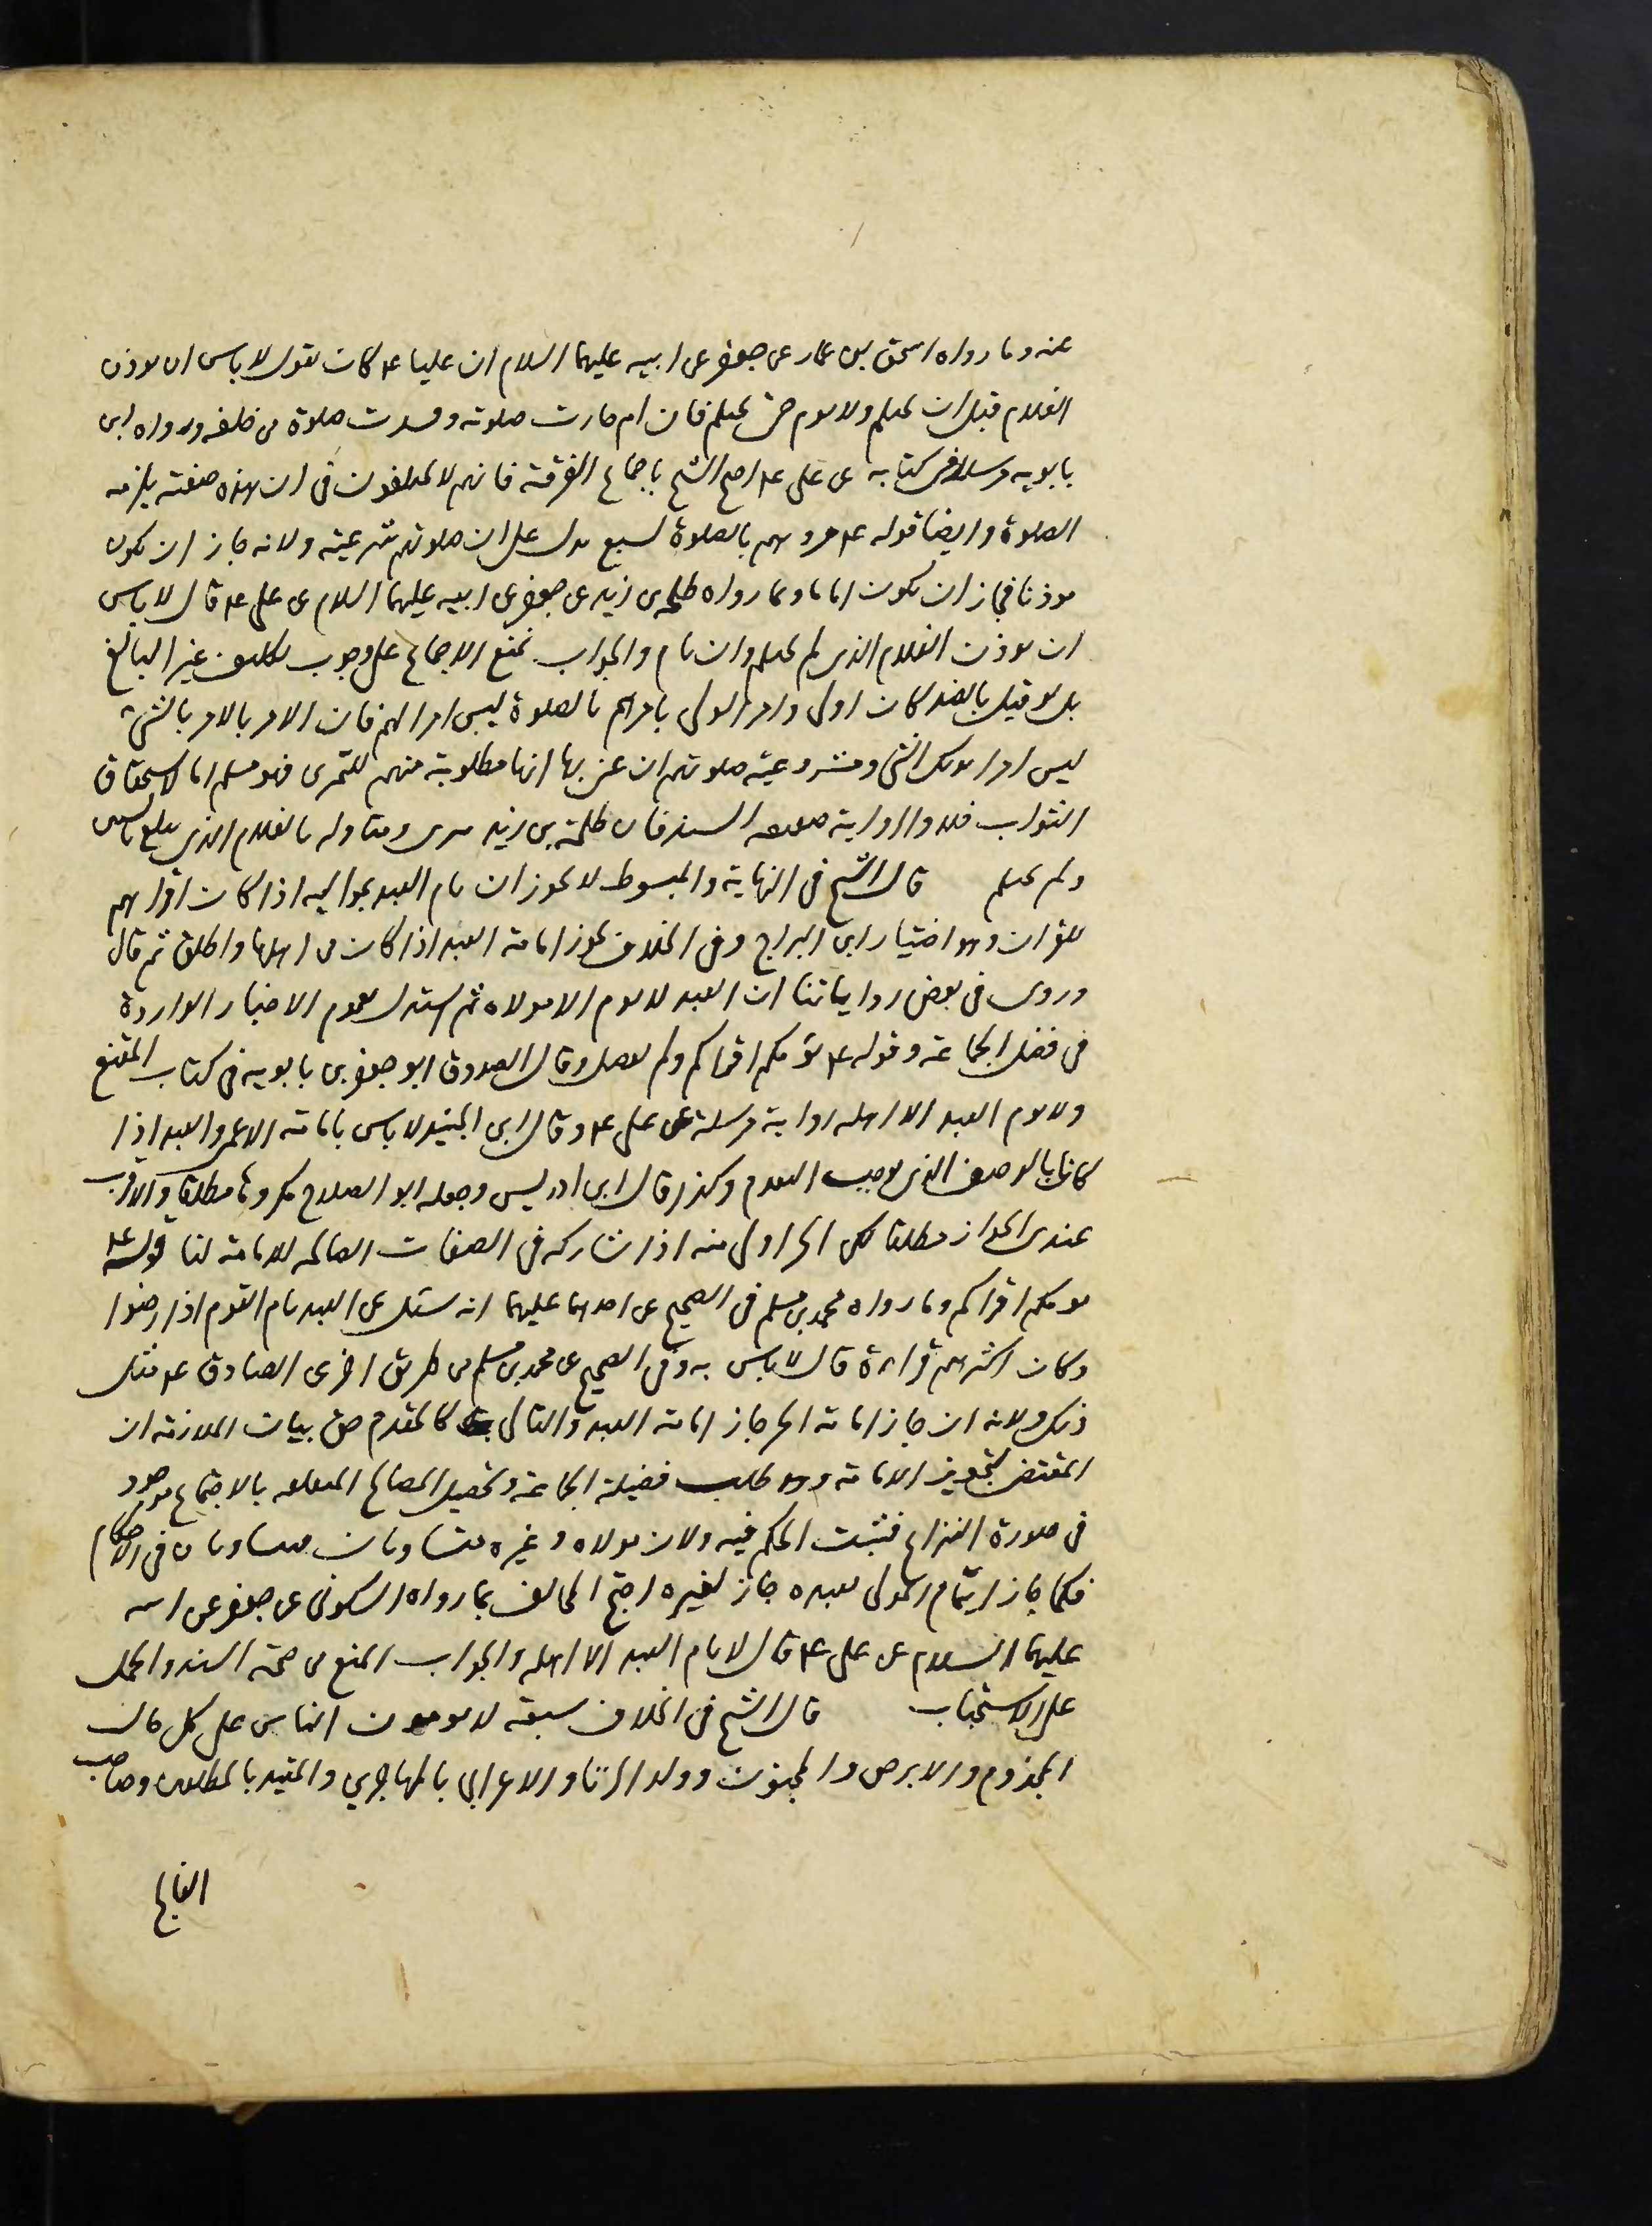 عنه وما رواه اسحق بن عمار عن جعفر عن ابيه عليهما السلام ان عليا ع كان يقول لا باس ان يوذن
الغلام قبل ان يحتلم ولا يوم حتى يحتلم فان ام جازت صلوته وفسدت صلوة من خلفه ورواه ابن
بابويه مرسلا في كتابه عن علي ع احتج الشيخ باجماع الفرقة فانهم لا يختلفون في ان هذه صفته يلزمه
الصلوة وايضا قوله ع مروهم بالصلوة لسبع يدل على ان صلوتهم شرعية ولانه جاز ان يكون
موذنا فجاز ان يكون اماما وبما رواه طلحة بن زيد عن جعفر عن ابيه عليهما السلام عن علي ع قال لا باس
ان يوذن الغلام الذي لم يحتلم وان يام والجواب نمنع الاجماع على وجوب تكليف غير البالغ
بل لو قيل بالضد كان اولى وامر الولي بامرهم بالصلوة ليس امرا لهم فان الامر بالامر بالشيء
ليس امرا بذلك الشي ومشروعية صلوتهم ان عني بها انها مطلوبة منهم للتمرين فهو مسلم اما لاستحقاق
الثواب فلا والرواية ضعيفة السند فان طلحة بن زيد بتري ومتاوله بالغلام الذي بلغ بالسن
ولم يحتلم قال الشيخ في النهاية والمبسوط لا يجوز ان يام العبد بمواليه اذا كان اقراهم
للقران وهو اختيار ابن البراج وفي الخلاف يجوز امامة العبد اذا كان من اهلها واطلق ثم قال
وروى في بعض رواياتنا ان العبد لا يوم الا مولاه ثم استدل بعموم الاخبار الواردة
في فضل الجماعة وقوله ع يؤمكم اقراكم ولم يفصل وقال الصدوق ابو جعفر بن بابويه في كتاب المقنع
ولا يوم العبد الا اهله رواية مرسلة عن علي ع وقال ابن الجنيد لا باس بامامة الاعمى والعبد اذا
كانا بالوصف الذي يوجب التقدم وكذا قال ابن ادريس وجعله ابو الصلاح مكروها مطلقا والاقرب
عندي الجواز مطلقا لكن الحر اولى منه اذا شاركه في الصفات الصالحة للامامة لنا قوله ع
يومكم اقراكم وما رواه محمد بن مسلم في الصحيح عن احدهما عليهما انه سئل عن العبد يام القوم اذا رضوا
وكان اكثرهم قراءة قال لا باس به وفي الصحيح عن محمد بن مسلم من طريق اخر عن الصادق ع مثل
ذلك ولانه ان جاز امامة الحر جاز امامة العبد والتالي كالمقدم حق بيان الملازمة ان
المقتضي لتجويز الامامة وهو طلب فضيلة الجماعة وتحصيل المصالح المتعلقة بالاجتماع موجود
في صورة النزاع فثبت الحكم فيه ولان مولاه وغيره متساويان متساويان في الاحكام
فكما جاز ايتمام المولى بعبده جاز لغيره احتج المخالف بما رواه السكوني عن جعفر عن ابيه
عليهما السلام عن علي ع قال لا يام العبد الا اهله والجواب المنع من صحة السند والحمل
على الاستحباب قال الشيخ في الخلاف سبعة لا يومون الناس على كل حال
المجذوم والابرص والمجنون وولد الزنا والاعرابي بالمهاجرين والمقيد بالمطلقين وصاحب
الفالج